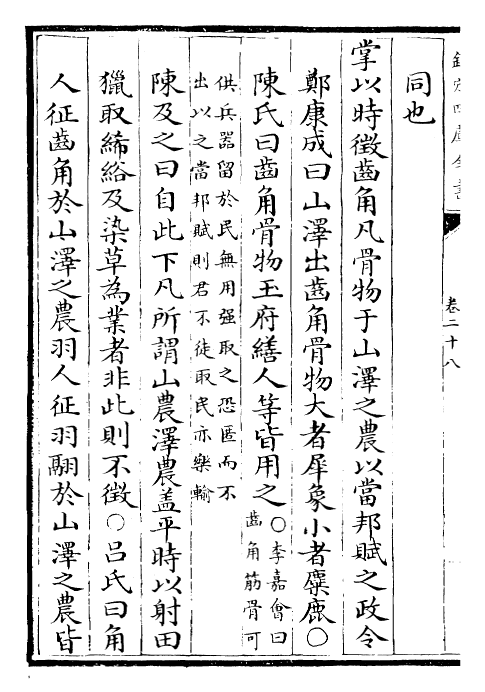 欽定四庫全書
卷二十八
同也
掌以時徵齒角凡骨物于山澤之農以當邦賦之政令
鄭康成曰山澤出齒角骨物大者犀象小者麋鹿〇
陳氏曰齒角骨物玉府繕人等皆用之〇李嘉會曰
齒角筋骨可
供兵器留於民無用强取之恐匿而不
出以之當邦賦則君不徒取民亦樂輸
陳及之曰自此下凡所謂山農澤農盖平時以射田
獵取絺綌及染草為業者非此則不徵〇吕氏曰角
人征齒角於山澤之農羽人征羽翮於山澤之農皆